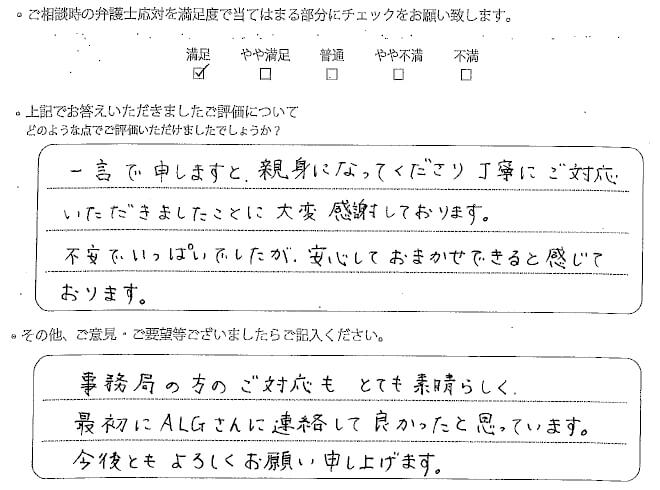 。ご相談時の弁護士応対を満足度で当てはまる部分にチェックをお願い致します。
満足 やや満足 普通 やや不満 不満
☑ □ □ □ □
。上記でお答えいただきましたご評価について
どのような点でご評価いただけましたでしょうか?
一言で申しますと、親身になってくださり丁寧にご対応
いただきましたことに大変感謝しております。
不安でいっぱいでしたが、安心しておまかせできると感じて
おります。
。その他、ご意見・ご要望等ございましたらご記入ください。
事務局の方のご対応もとても素晴らしく、
最初にALGさんに連絡して良かったと思っています。
今後ともよろしくお願い申し上げます。